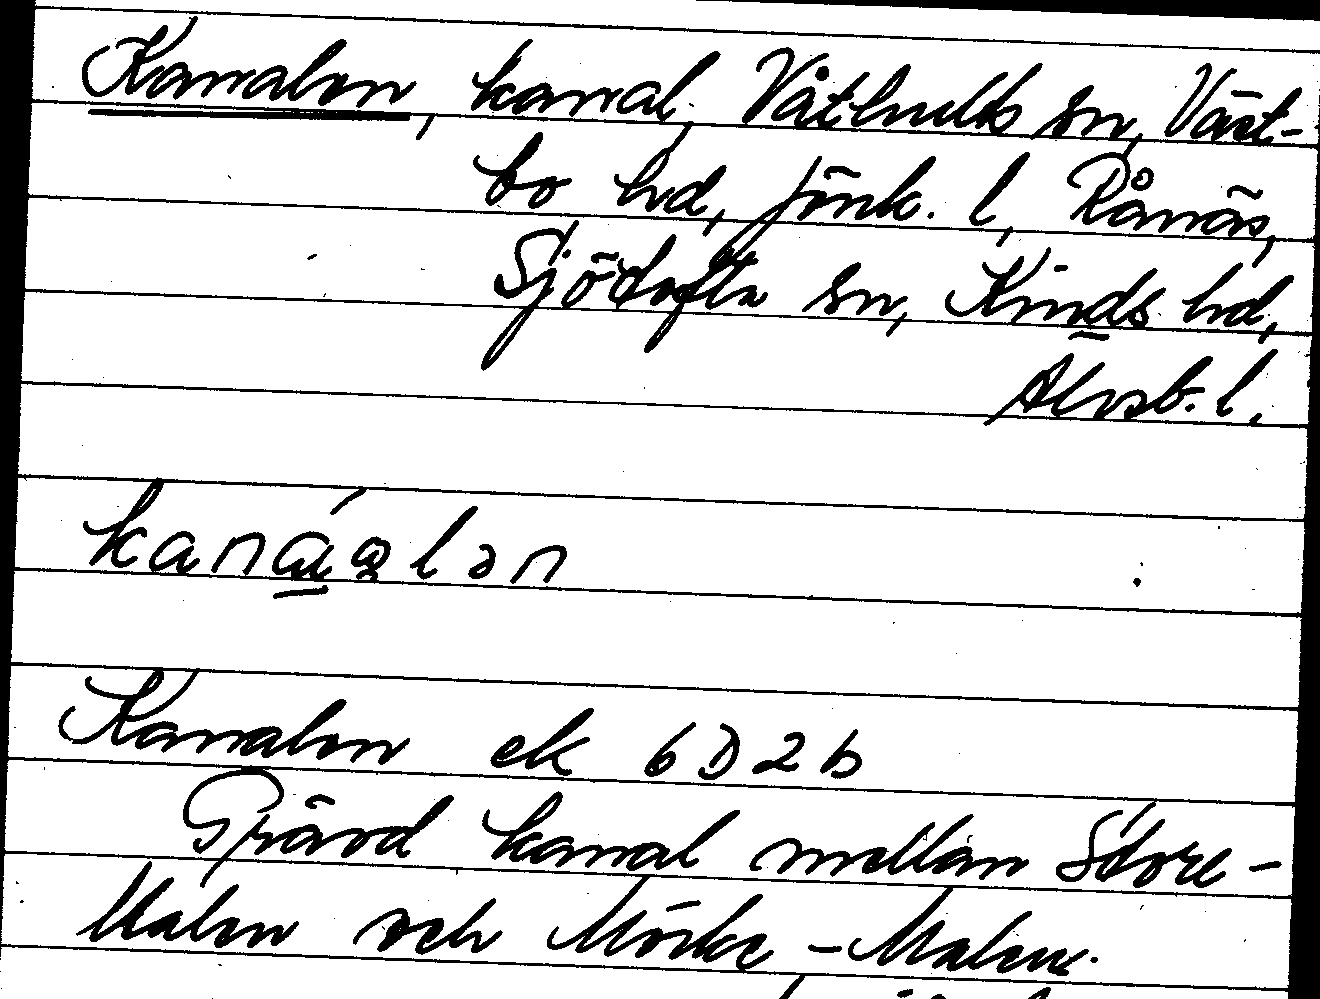 Kanalen, kanal, Våthults sn, Väst-
bo hd, Jönk. l, Rånäs,
Sjötofta sn, Kinds hd,
Älvsb. l.
kanáɑlən
Kanalen ek 6D2b
Grävd kanal mellan Store-
Malen och Mörke-Malen.